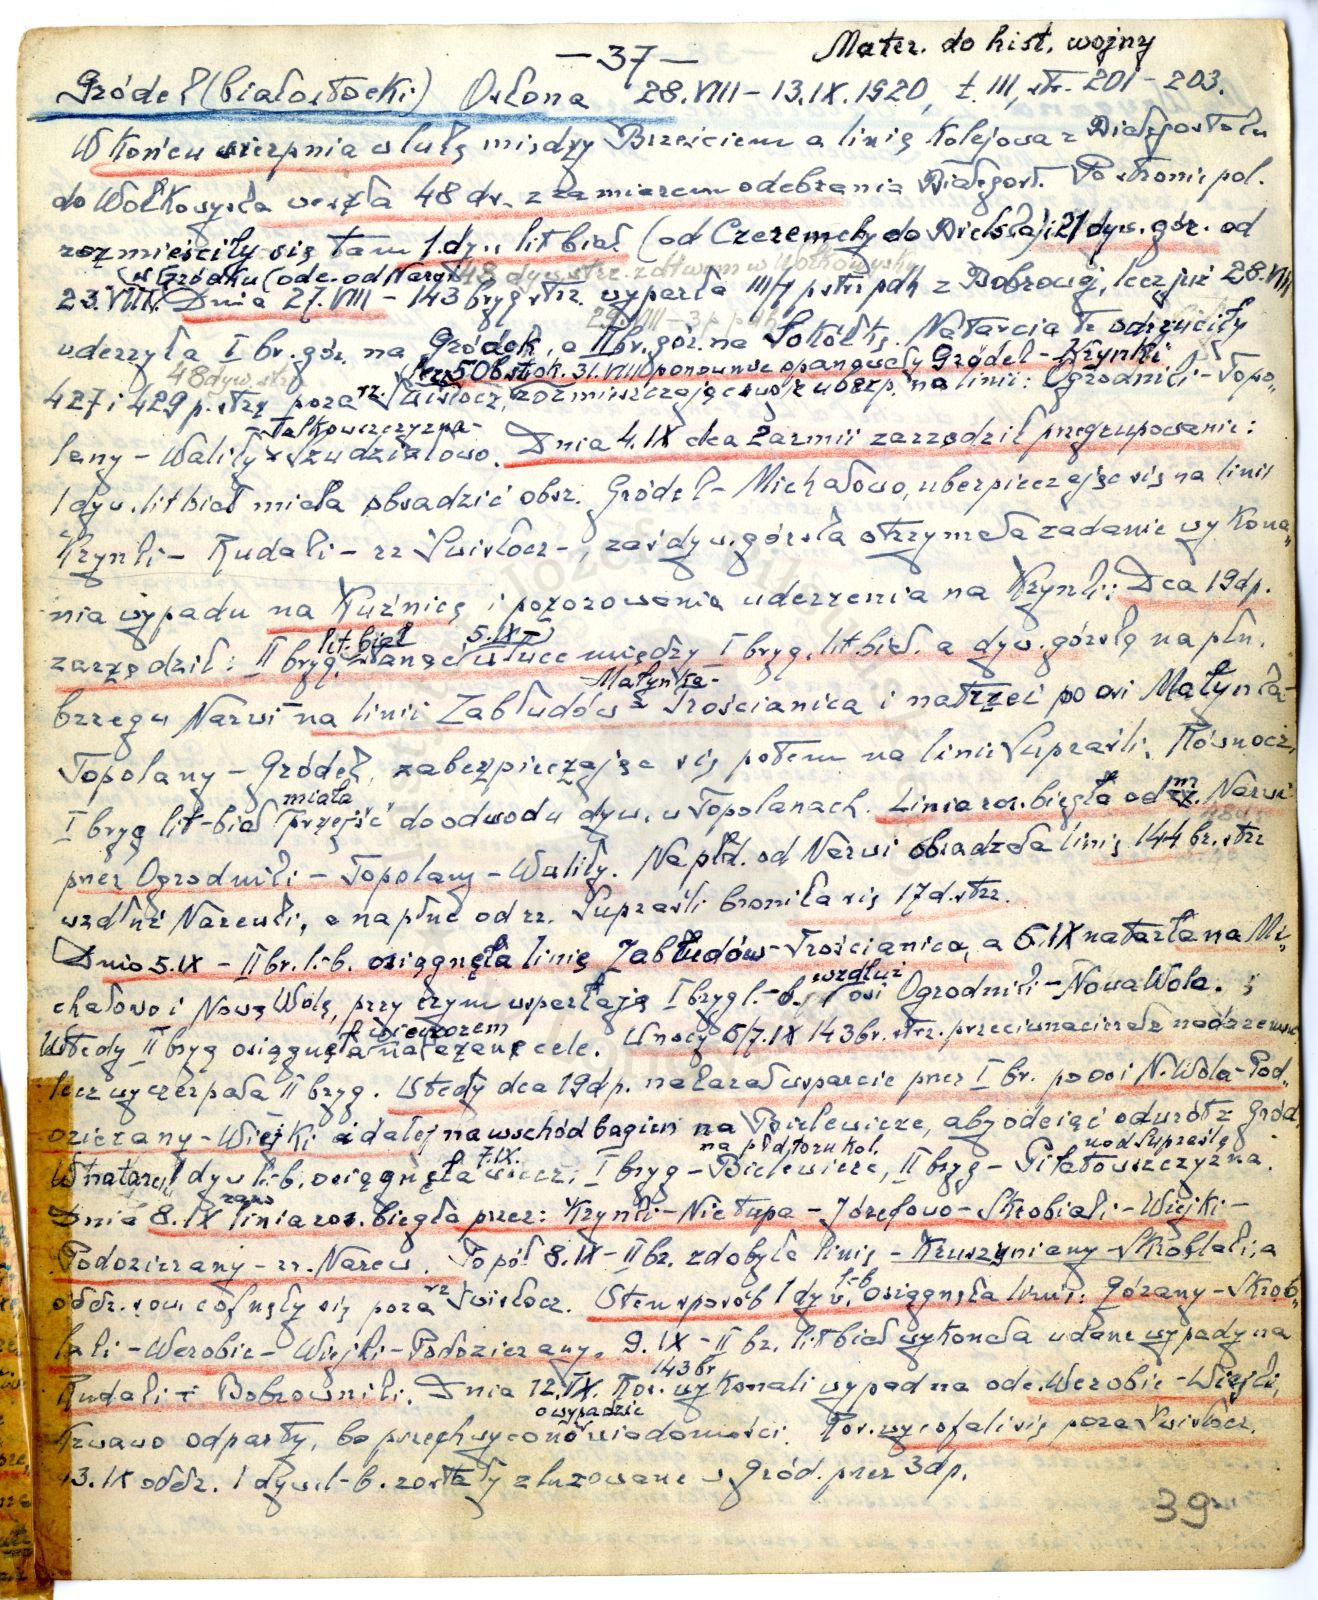 — 37 —
Mater. do hist. wojny
Gródek (białostocki) Osłona 28.VIII – 13.IX.1920, t. III, str. 201 – 203.
W końcu sierpnia w lukę między Brześciem a linię kolejową z Białegostoku
do Wołkowyska weszła 48 d. z zamiarem odebrania Białegost. Po stronie pol.
rozmieściły się tam 1. dy. lit biał (od Czeremchy do Bielska) i 21 dyw. gór. od
w Gródku (odc. od Narwi 48 dyw. strz. z dtwem w Wołkowysku
23.VIII. Dnia 27.VIII – 143 bryg strz. wyparła III/1 p strz pdh z Dobrowej, lecz już 28.VIII
29.VIII – 3 p pdh
uderzyła I br. gór. na Gródek, a II br. gór. na Sokółkę. Natarcia te odrzuciły
48 dyw. strz. lecz 50 bstok. 31.VIII ponownie opanowały Gródek – Krynki
427 i 429 p. strz poza rz. Świsłocz, rozmieszczając swoje ubezp. na linii: Ogrodniki – Topo„
Talkowszczyzna –
lany – Waliły – Szudziałowo. Dnia 4.IX dca 2 armii zarządził przegrupowanie:
1 dyw. lit biał miała obsadzić obsz. Gródek – Michałowo, ubezpieczając się na linii
Krynki – Rudaki – rz Świsłocz –, zaś dyw. górska otrzymała zadanie wykona„
nia wypadu na Kuźnicę i pozorowania uderzenia na Krynki: Dca 19 dp.
lit. biał 5.IX
zarządził: II bryg. stanąć w luce między I bryg. lit. biał. a dyw. górską na płn.
Małynka –
brzegu Narwi na linii Zabłudów – Trościanica i natrzeć po osi Małynka –
Topolany – Gródek, zabezpieczając się potem na linii Supraśli. Równocz.
miała
I bryg lit-biał przejść do odwodu dyw. w Topolanach. Linia ros. biegła od m. Narwi
przez Ogrodniki – Topolany – Waliły. Na płd. od Narwi obsadzała linię 144 br. strz
wzdłuż Narewki, a na płnc od rz. Supraśli broniła się 17 d. strz.
Dnia 5.IX – II br. l.-b. osiągnęła linię Zabłudów – Trościanica, a 6.IX natarła na Mi„
wzdłuż
chałowo i Nową Wolę, przy czym wsparła ją I bryg l.-b. osi Ogrodniki – Nowa Wola.
wieczorem
Wtedy II bryg osiągnęła nakazane cele. W nocy 6/7.IX 143 br. strz. przeciwnacierała nadaremnie
lecz wyczerpała II bryg. Wtedy dca 19 dp. nakazał wsparcie przez I br. po osi N. Wola – Pod„
ozierany – Wiejki i dalej na wschód bagien na Bielewicze, aby odciąć odwrót z Gród.
7.IX. na płd toru kol. nad Supraślą
W natarciu 1 dyw l.-b. osiągnęła wiecz: I bryg – Bielewicze, II bryg – Piłatowszczyzna.
rano
Dnia 8.IX linia ros. biegła przez: Krynki – Nietupa – Józefowo – Skroblaki – Wiejki –
Podozierany – rz. Narew. Popoł 8.IX – II bz. zdobyła linię – Kruszyniany – Skroblaki, a
oddz. sow. cofnęły się poza rz Świsłocz. W ten sposób 1 dyw. l.-b osiągnęła linię: Górany – Skrob„
laki – Werobie – Wiejki – Podozierany. 9.IX – II bz. lit biał wykonała udane wypady na
143 br
Rudaki i Bobrowniki. Dnia 12.IX. Ros. wykonali wypad na odc. Werobie – Wiejki,
o wypadzie
krwawo odparty, bo przechwycono wiadomości. Ros. wycofali się poza Świsłocz.
13.IX oddz. 1 dyw l-b. zostały zluzowane w Gród. przez 3 dp.
39